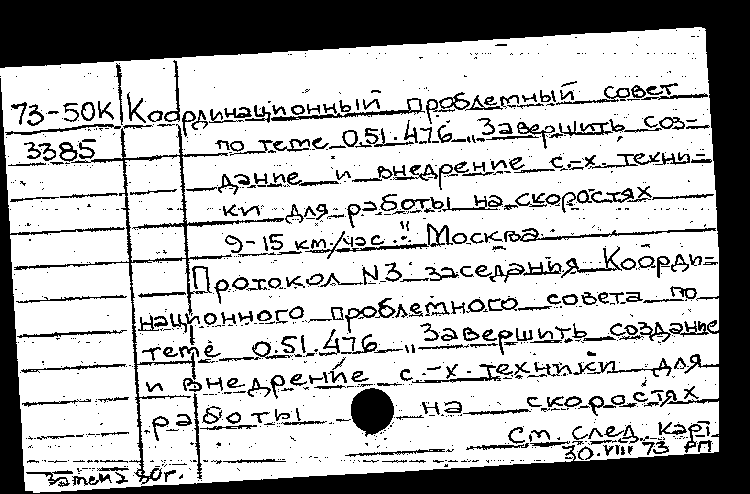 73-50К Координационный проблемный совет
3385 по теме 0.51.476 „Завершить соз-
дание и внедрение с.-х. техни-
ки для работы на скоростях
9-15 км/час." Москва.
Протокол N3 заседанья Коорди-
национного проблемного совета по
теме 0.51.476 „Завершить создание
и внедрение с.-х. техники для
работы на скоростях
См. след. карт
30.VIII 73 РП
80г.